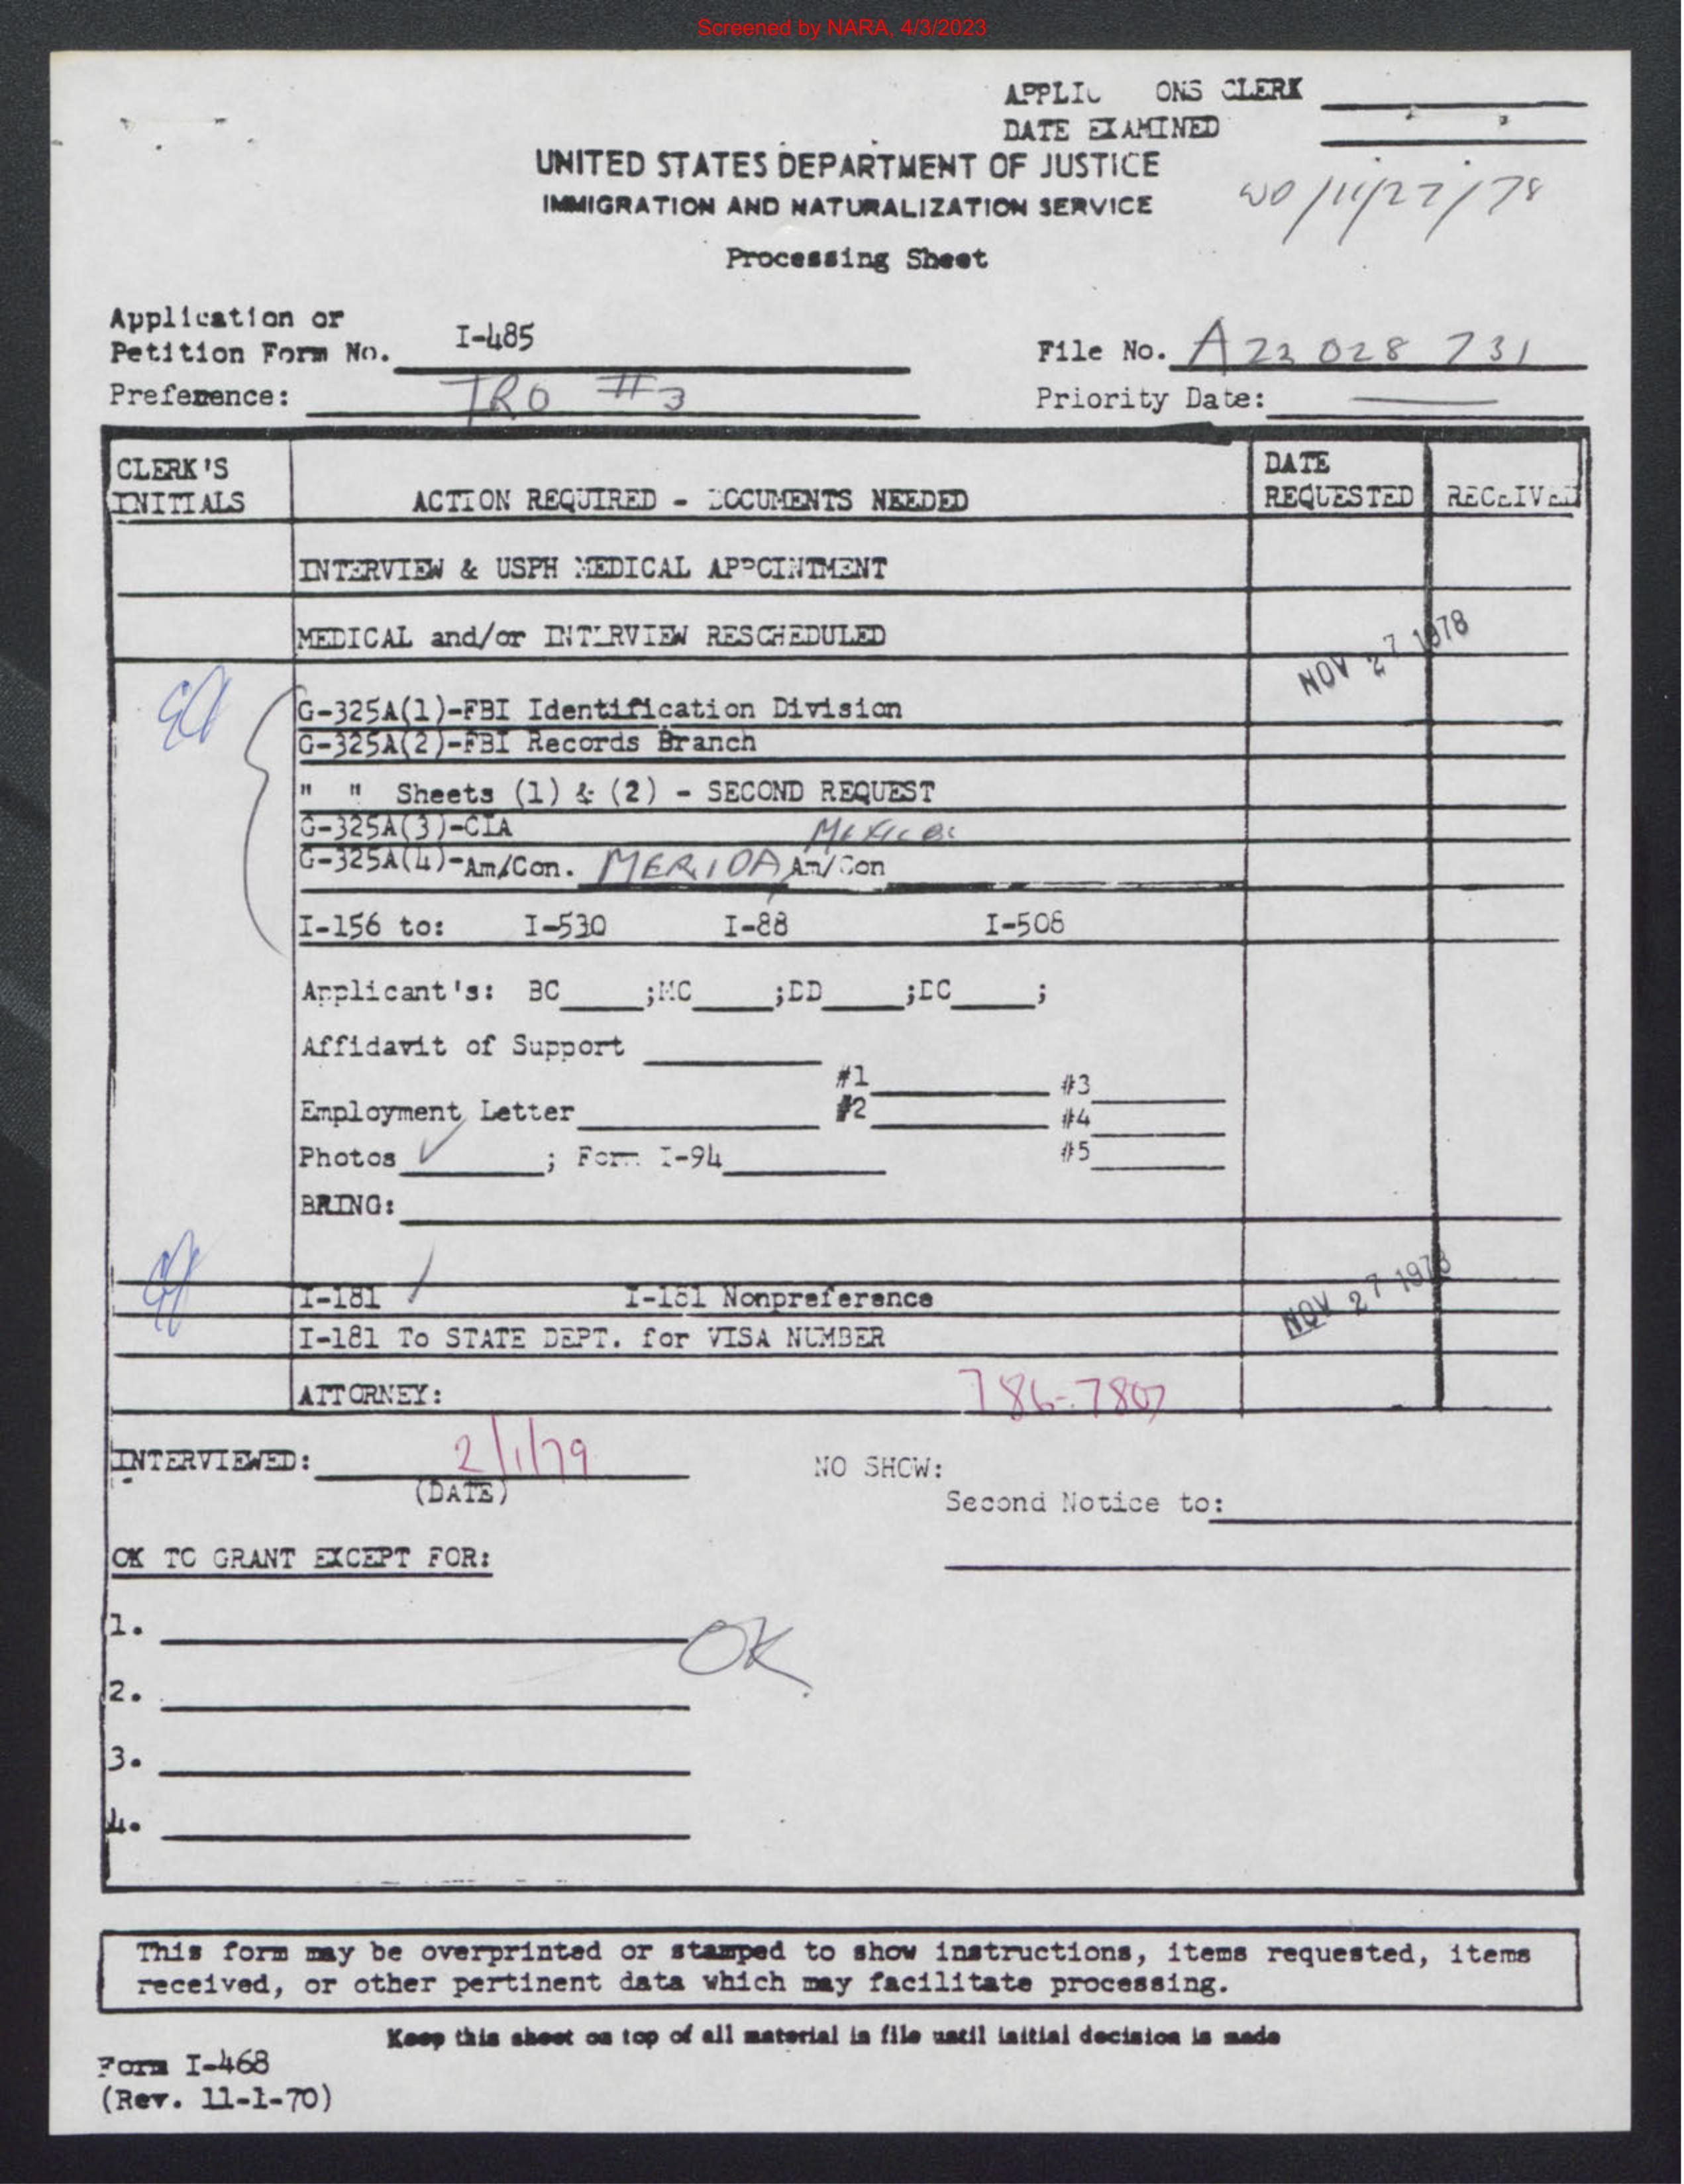 Screened by NARA, 4/3/2023
ONS CLERK
DATE EXAMINED
UNITED STATES DEPARTMENT OF JUSTICE
IMMIGRATION AND NATURALIZATION SERVICE
WO/11/27/78
Processing Sheet
Application or
Petition Form No. I-485
File No. A22 028 731
Preference: IRO #3
Priority Date: —
CLERK'S
INITIALS
ACTION REQUIRED - DOCUMENTS NEEDED
DATE
REQUESTED
RECEIVED
INTERVIEW & USPH MEDICAL APPOINTMENT
MEDICAL and/or INTERVIEW RESCHEDULED
NOV 27 1978
G-325A(1)-FBI Identification Division
G-325A(2)-FBI Records Branch
" " Sheets (1) & (2) - SECOND REQUEST
G-325A(3)-CIA
G-325A(4)-Am/Con. MERIDA, Am/Con
I-156 to: I-530 I-88 I-508
Applicant's: BC ;MC ;DD ;DC ;
Affidavit of Support
#1 #3
Employment Letter #2 #4
Photos ✓ ; Form I-94 #5
BRING:
I-181 / I-181 Nonpreference
NOV 27 1978
I-181 To STATE DEPT. for VISA NUMBER
ATTORNEY: 786-7807
INTERVIEWED: 2/1/79
(DATE)
NO SHOW:
Second Notice to:
OK TO GRANT EXCEPT FOR:
1.
OK
2.
3.
4.
This form may be overprinted or stamped to show instructions, items requested, items
received, or other pertinent data which may facilitate processing.
Keep this sheet on top of all material in file until initial decision is made
Form I-468
(Rev. 11-1-70)